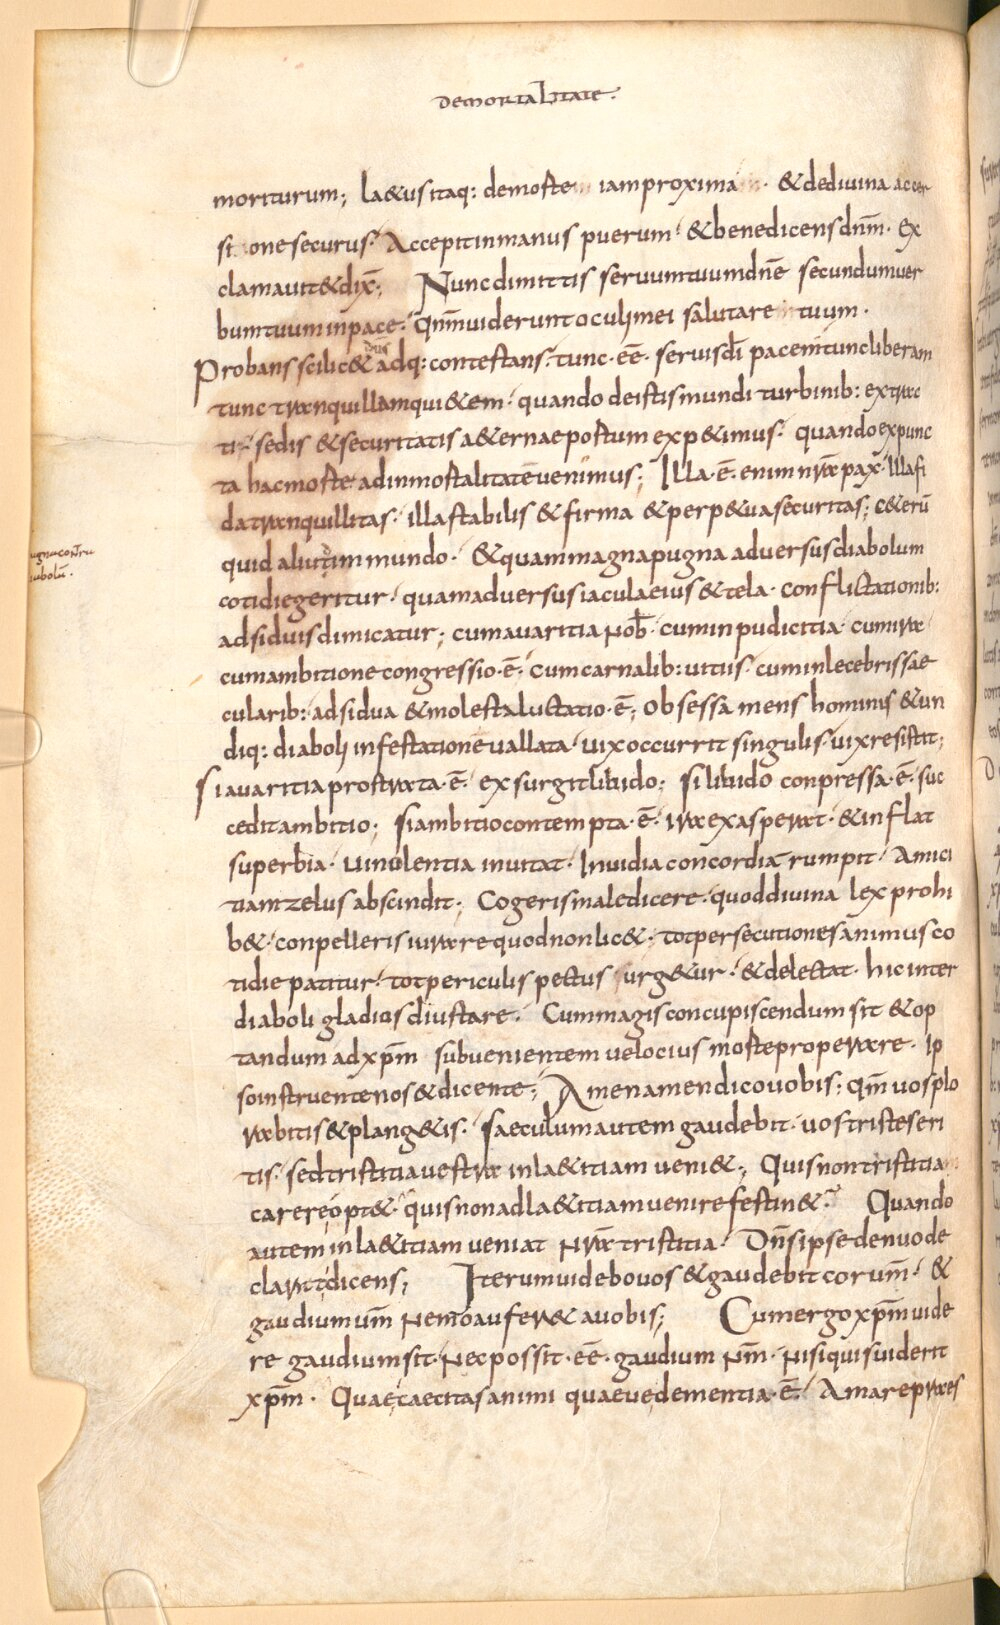 demortalitate.
moriturum; la&us itaq: demorte iam proxima · & dedivina accer
si one securus. Accepit in manus puerum & benedicens dn̄m. ex
clamavit & dix̄; Nunc dimittis servum tuum dn̄e secundum ver
bum tuum in pace. Qn̄m viderunt oculi mei salutare tuum.
Probans scilic& adq: contestans. tunc. eē. servis dī pacem tunc liberam
tunc tranquillam qui&em. quando de istis mundi turbinib: extrac
ti sedis & securitatis a&ernae portum exp&imus. quando expunc
ta hac morte ad inmortalitatē venimus; Illa. ē. enim nr̄a pax. Illa fi
da tranquillitas. illa stabilis & firma & perp&ua securitas; c&erū
quid aliut in mundo. & quam magna pugna adversus diabolum
ugna contra
iabolū.
cotidie geritur. quam adversus iacula eius & tela. conflictationib:
adsiduis dimicatur; cum avaritia nob̄. cum inpudicitia. cum ira
cum ambitione congressio. ē. cum carnalib: vitiis. cum inlecebris sae
cularib: adsidua & molesta luctatio. ē; obsessa mens hominis & un
diq: diaboli infestatione vallata. vix occurrit singulis. vix resistit;
Si avaritia prostrata. ē. exsurgit libido; si libido conpressa. ē. suc
cedit ambitio; si ambitio contempta. ē. ira exasperat. & inflat
superbia. vinolentia invitat. Invidia concordiā rumpit. Amici
tiam zelus abscindit; Cogeris maledicere. quod divina lex prohi
b&. conpelleris iurare quod non lic&. tot persecutiones animus co
tidie patitur. tot periculis pectus urg&ur. & delectat. hic inter
diaboli gladios diu stare. Cum magis concupiscendum sit & op
tandum ad xp̄m subvenientem velocius morte properare. Ip
so instruente nos & dicente; Amen amen dico vobis. qm̄ vos plo
rabitis & plang&is. saeculum autem gaudebit. vos tristes eri
tis. sed tristitia vestra in la&itiam veni&; Quis non tristitia
carere opt& quis non ad la&itiam venire festin&. Quando
autem in la&itiam veniat nr̄a tristitia. Dn̄s ipse denuo de
clarat dicens; Iterum videbo vos & gaudebit cor um̄. &
gaudium um̄ nemo aufer& a vobis; Cum ergo xp̄m vide
re gaudium sit. nec possit. eē. gaudium nm̄. nisi quis viderit
xp̄m. Quae caecitas animi quaeve dementia. ē. Amare pres